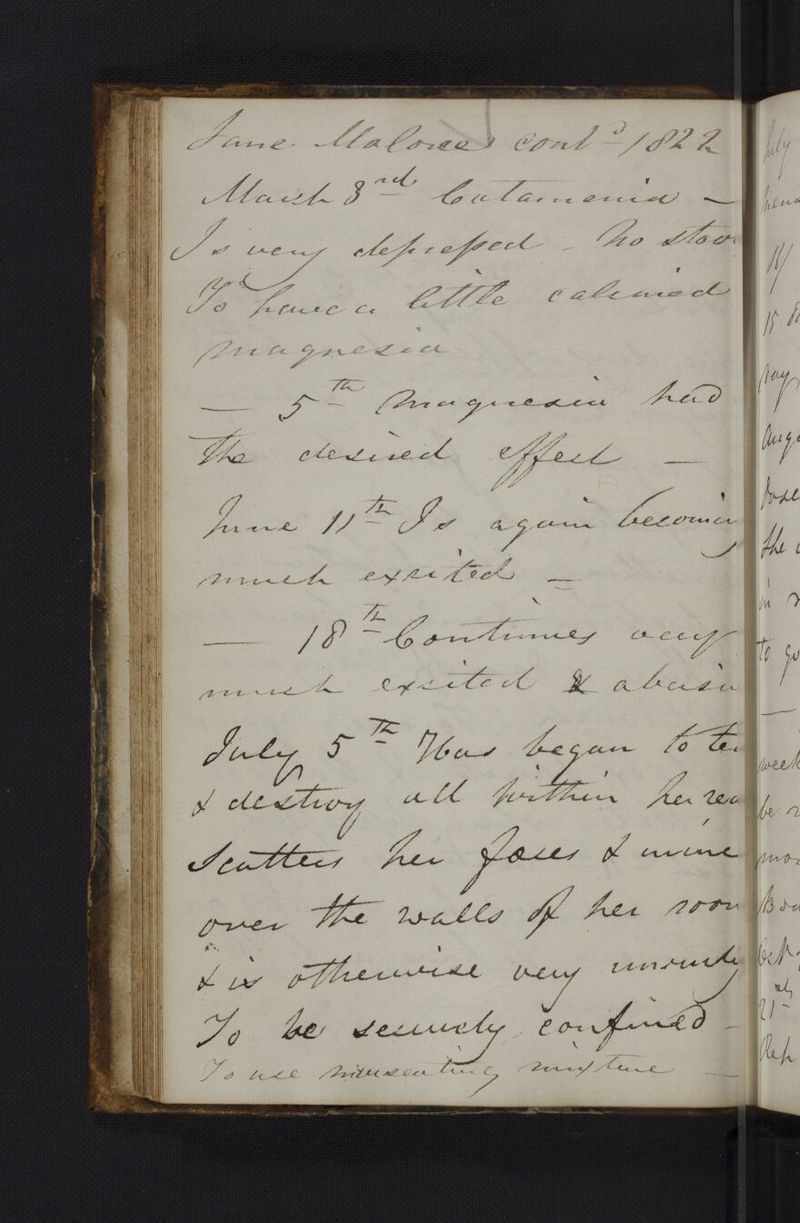 Jane Malone cont^d 1822
March 3rd Catamenia —
Is very depressed — No stoo
To have a little calcined
magnesia
— 5th Magnesia had
the desired effect —
June 11th Is again becomin
much excited —
— 18th Continues very
much excited & abusiv
July 5th Has began to tea
& destroy all within her rea
Scatters her fæces & urine
over the walls of her room
& is otherwise very unruly
To be securely confined —
To use nauseating mixture —
July
R/
15
Augt
the
in
to go
week
be
21st